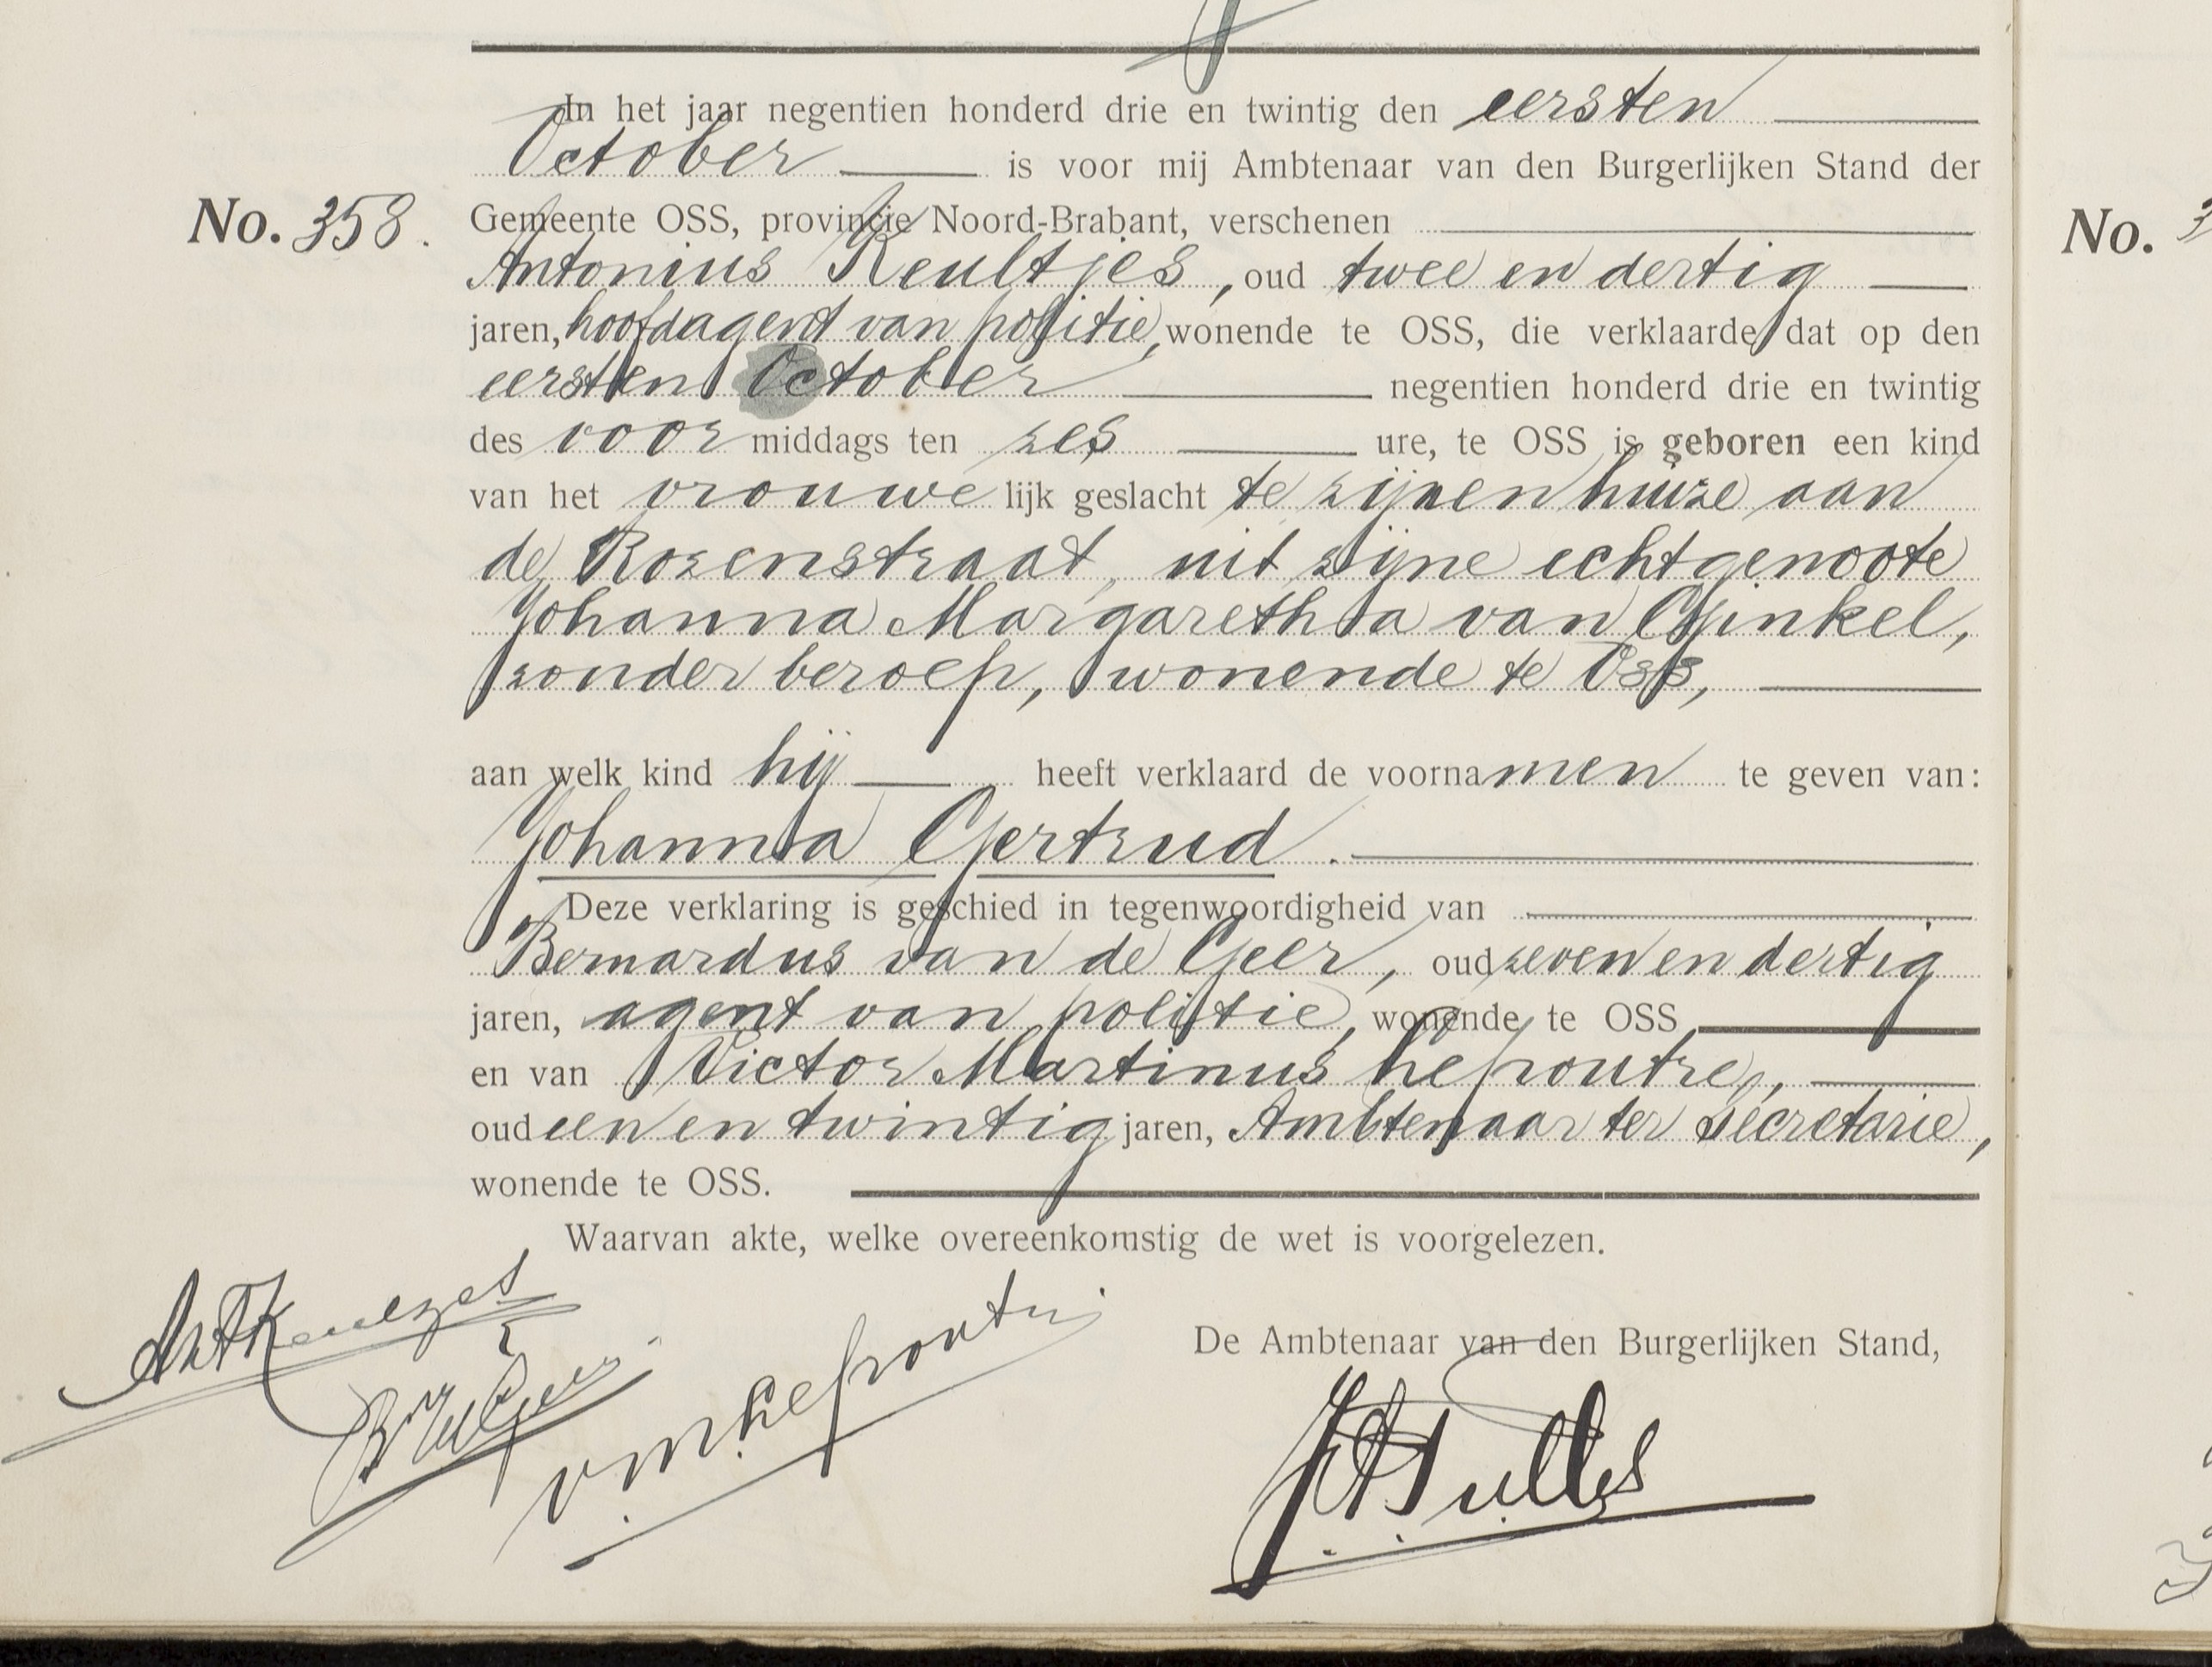 In het jaar negentien honderd drie en twintig den eersten
October is voor mij Ambtenaar van den Burgerlijken Stand der
No. 358. Gemeente OSS, provincie Noord-Brabant, verschenen
Antonius Keultjes, oud twee en dertig
jaren, hoofdagent van politie, wonende te OSS, die verklaarde dat op den
eersten October negentien honderd drie en twintig
des voor middags ten zes ure, te OSS is geboren een kind
van het vrouwe lijk geslacht te zijnen huize aan
de Rozenstraat, uit zijne echtgenoote
Johanna Margaretha van Ginkel,
zonder beroep, wonende te Oss,
aan welk kind hij heeft verklaard de voornamen te geven van:
Johanna Gertrud.
Deze verklaring is geschied in tegenwoordigheid van
Bernardus van de Geer, oud zeven en dertig
jaren, agent van politie, wonende te OSS
en van Victor Martinus Lepoutre,
oud een en twintig jaren, Ambtenaar ter Secretarie,
wonende te OSS.
Waarvan akte, welke overeenkomstig de wet is voorgelezen.
De Ambtenaar van den Burgerlijken Stand,
No.